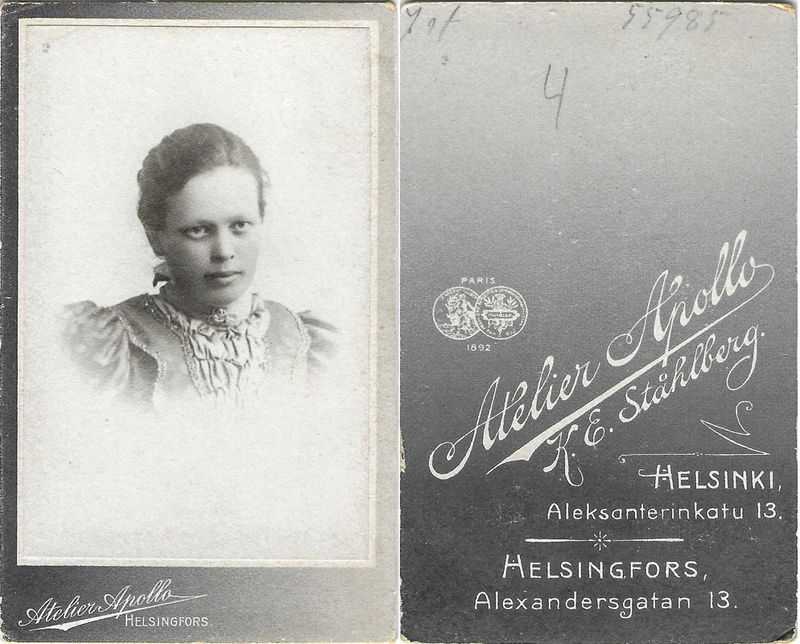 Atelier Apollo
HELSINGFORS.
55985
4
PARIS
1892
Atelier Apollo
K. E. Ståhlberg.
HELSINKI,
Aleksanterinkatu 13.
HELSINGFORS,
Alexandersgatan 13.